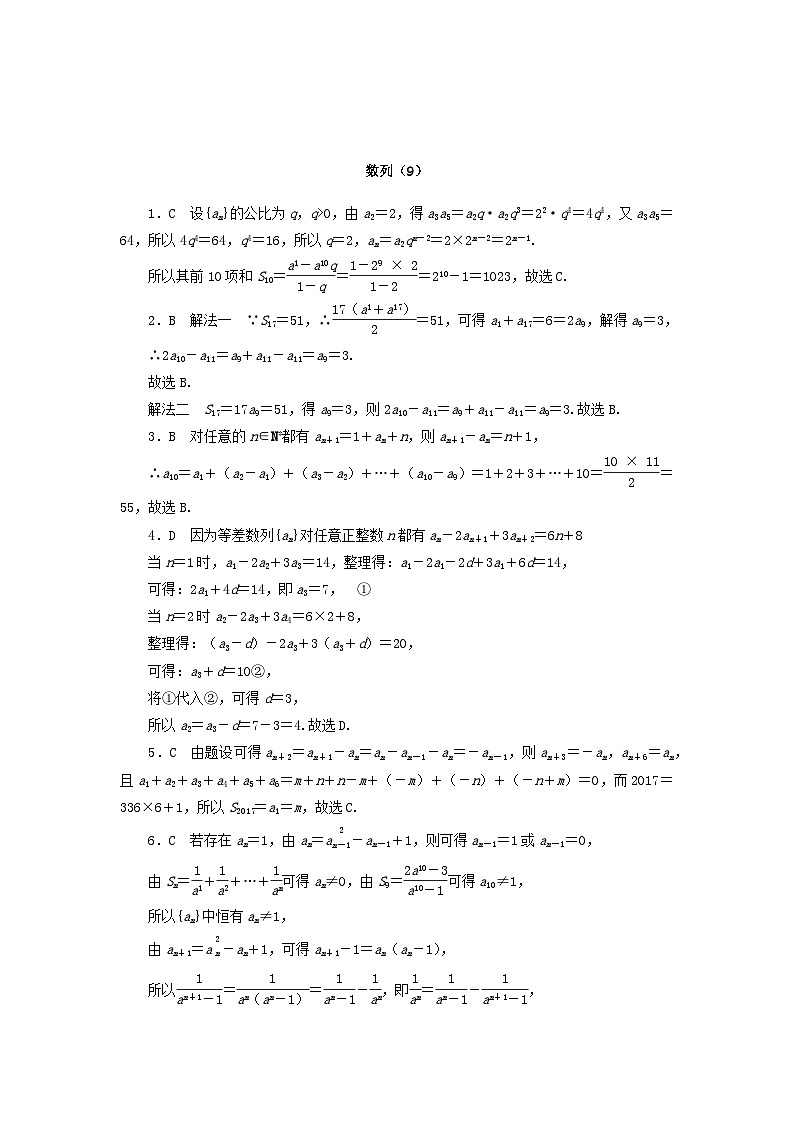 数列（9）
1．C　设{aₙ}的公比为q，q>0，由a₂＝2，得a₃a₅＝a₂q·a₂q³＝2²·q⁴＝4q⁴，又a₃a₅＝
64，所以4q⁴＝64，q⁴＝16，所以q＝2，aₙ＝a₂qⁿ⁻²＝2×2ⁿ⁻²＝2ⁿ⁻¹.
所以其前10项和S₁₀＝(a¹－a¹⁰q)/(1－q)＝(1－2⁹ × 2)/(1－2)＝2¹⁰－1＝1023，故选C.
2．B　解法一　∵S₁₇＝51，∴17（a¹＋a¹⁷）/2＝51，可得a₁＋a₁₇＝6＝2a₉，解得a₉＝3，
∴2a₁₀－a₁₁＝a₉＋a₁₁－a₁₁＝a₉＝3.
故选B.
解法二　S₁₇＝17a₉＝51，得a₉＝3，则2a₁₀－a₁₁＝a₉＋a₁₁－a₁₁＝a₉＝3.故选B.
3．B　对任意的n∈N*都有aₙ₊₁＝1＋aₙ＋n，则aₙ₊₁－aₙ＝n＋1，
∴a₁₀＝a₁＋（a₂－a₁）＋（a₃－a₂）＋…＋（a₁₀－a₉）＝1＋2＋3＋…＋10＝(10 × 11)/2＝
55，故选B.
4．D　因为等差数列{aₙ}对任意正整数n都有aₙ－2aₙ₊₁＋3aₙ₊₂＝6n＋8
当n＝1时，a₁－2a₂＋3a₃＝14，整理得：a₁－2a₁－2d＋3a₁＋6d＝14，
可得：2a₁＋4d＝14，即a₃＝7，　①
当n＝2时a₂－2a₃＋3a₄＝6×2＋8，
整理得：（a₃－d）－2a₃＋3（a₃＋d）＝20，
可得：a₃＋d＝10②，
将①代入②，可得d＝3，
所以a₂＝a₃－d＝7－3＝4.故选D.
5．C　由题设可得aₙ₊₂＝aₙ₊₁－aₙ＝aₙ－aₙ₋₁－aₙ＝－aₙ₋₁，则aₙ₊₃＝－aₙ，aₙ₊₆＝aₙ，
且a₁＋a₂＋a₃＋a₄＋a₅＋a₆＝m＋n＋n－m＋（－m）＋（－n）＋（－n＋m）＝0，而2017＝
336×6＋1，所以S₂₀₁₇＝a₁＝m，故选C.
6．C　若存在aₙ＝1，由aₙ＝aₙ₋₁²－aₙ₋₁＋1，则可得aₙ₋₁＝1或aₙ₋₁＝0，
由Sₙ＝1/a¹＋1/a²＋…＋1/aⁿ可得aₙ≠0，由S₉＝(2a¹⁰－3)/(a¹⁰－1)可得a₁₀≠1，
所以{aₙ}中恒有aₙ≠1，
由aₙ₊₁＝aₙ²－aₙ＋1，可得aₙ₊₁－1＝aₙ（aₙ－1），
所以1/(aⁿ⁺¹－1)＝1/(aⁿ（aⁿ－1）)＝1/(aⁿ－1)－1/aⁿ，即1/aⁿ＝1/(aⁿ－1)－1/(aⁿ⁺¹－1)，